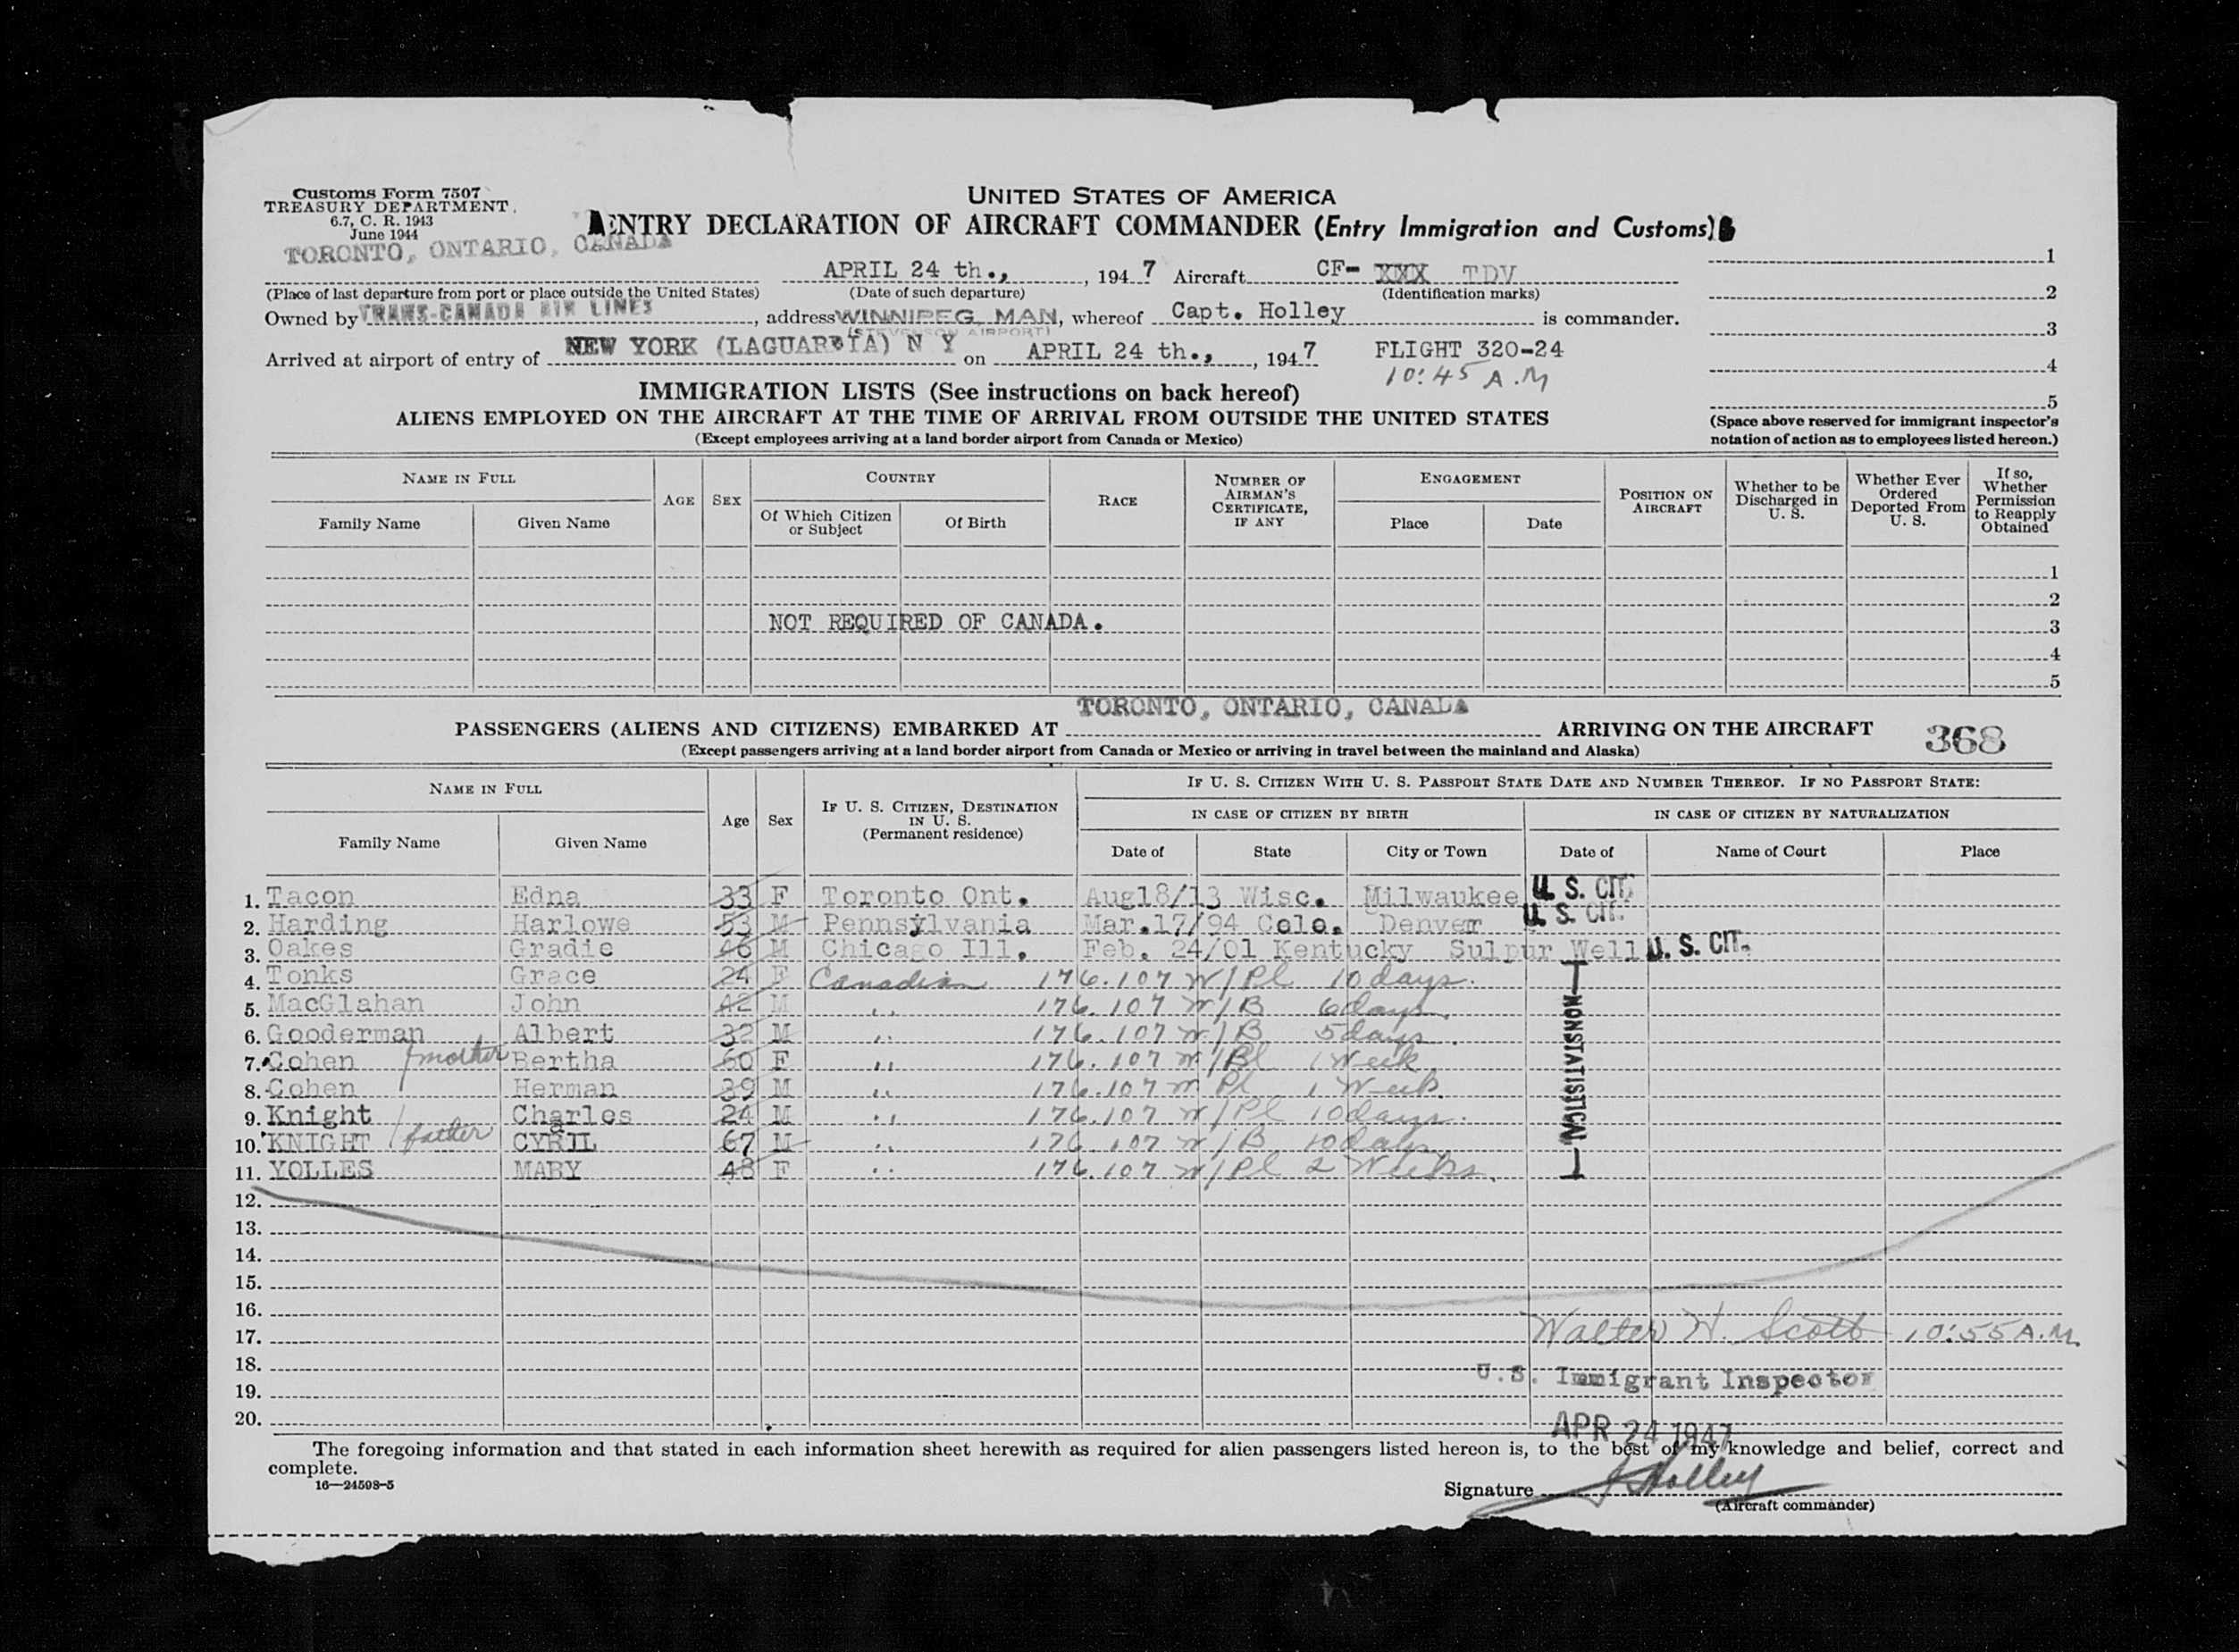 Customs Form 7507
TREASURY DEPARTMENT
6.7, C. R. 1943
June 1944
UNITED STATES OF AMERICA
ENTRY DECLARATION OF AIRCRAFT COMMANDER (Entry Immigration and Customs)
TORONTO, ONTARIO, CANADA APRIL 24 th., , 194 7 Aircraft CF- XXX TDV 1
(Place of last departure from port or place outside the United States) (Date of such departure) (Identification marks) 2
Owned by TRANS-CANADA AIR LINES , address WINNIPEG, MAN, whereof Capt. Holley is commander. 3
(STEVENSON AIRPORT)
Arrived at airport of entry of NEW YORK (LAGUARDIA) N Y on APRIL 24 th., , 194 7 FLIGHT 320-24 4
10:45 A.M
IMMIGRATION LISTS (See instructions on back hereof) 5
ALIENS EMPLOYED ON THE AIRCRAFT AT THE TIME OF ARRIVAL FROM OUTSIDE THE UNITED STATES (Space above reserved for immigrant inspector's
(Except employees arriving at a land border airport from Canada or Mexico) notation of action as to employees listed hereon.)
NAME IN FULL AGE SEX COUNTRY RACE NUMBER OF AIRMAN'S CERTIFICATE, IF ANY ENGAGEMENT POSITION ON AIRCRAFT Whether to be Discharged in U. S. Whether Ever Ordered Deported From U. S. If so, Whether Permission to Reapply Obtained
Family Name Given Name Of Which Citizen or Subject Of Birth Place Date
1
2
NOT REQUIRED OF CANADA. 3
4
5
TORONTO, ONTARIO, CANADA
PASSENGERS (ALIENS AND CITIZENS) EMBARKED AT ARRIVING ON THE AIRCRAFT 368
(Except passengers arriving at a land border airport from Canada or Mexico or arriving in travel between the mainland and Alaska)
NAME IN FULL Age Sex IF U. S. CITIZEN, DESTINATION IN U. S. (Permanent residence) IF U. S. CITIZEN WITH U. S. PASSPORT STATE DATE AND NUMBER THEREOF. IF NO PASSPORT STATE:
IN CASE OF CITIZEN BY BIRTH IN CASE OF CITIZEN BY NATURALIZATION
Family Name Given Name Date of State City or Town Date of Name of Court Place
1. Tacon Edna 33 F Toronto Ont. Aug18/13 Wisc. Milwaukee U. S. CIT.
2. Harding Harlowe 53 M Pennsylvania Mar.17/94 Colo. Denver U. S. CIT.
3. Oakes Gradie 46 M Chicago Ill. Feb. 24/01 Kentucky Sulpur Well U. S. CIT.
4. Tonks Grace 24 F Canadian 176.107 W/Pl 10 days.
5. MacGlahan John 42 M " 176.107 W/B 6 days.
6. Gooderman Albert 32 M " 176.107 W/B 5 days.
7. Cohen mother Bertha 60 F " 176.107 W/Bl 1 Week
8. Cohen Herman 39 M " 176.107 W Pl 1 Week.
9. Knight Charles 24 M " 176.107 W/Pl 10 days.
10. KNIGHT father CYRIL 67 M " 176.107 W/B 10 days
11. YOLLES MARY 48 F " 176.107 W/Pl 2 Weeks.
NONSTATISTICAL
12.
13.
14.
15.
16.
17. Walter H. Scott 10:55 A.M.
18. U.S. Immigrant Inspector
19.
20. APR 24 1947
The foregoing information and that stated in each information sheet herewith as required for alien passengers listed hereon is, to the best of my knowledge and belief, correct and
complete.
16—24598-5
Signature J Holley
(Aircraft commander)